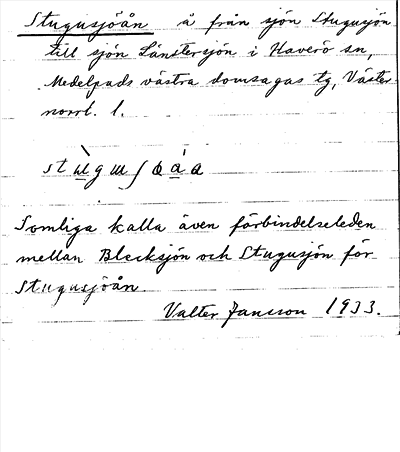 Stugusjöån å från sjön Stugusjön
till sjön Länstersjön i Haverö sn,
Medelpads västra domsagas tg, Väster-
norrl. l.
Somliga kalla även förbindelseleden
mellan Blecksjön och Stugusjön för
Stugusjöån.
Valter Jansson 1933.